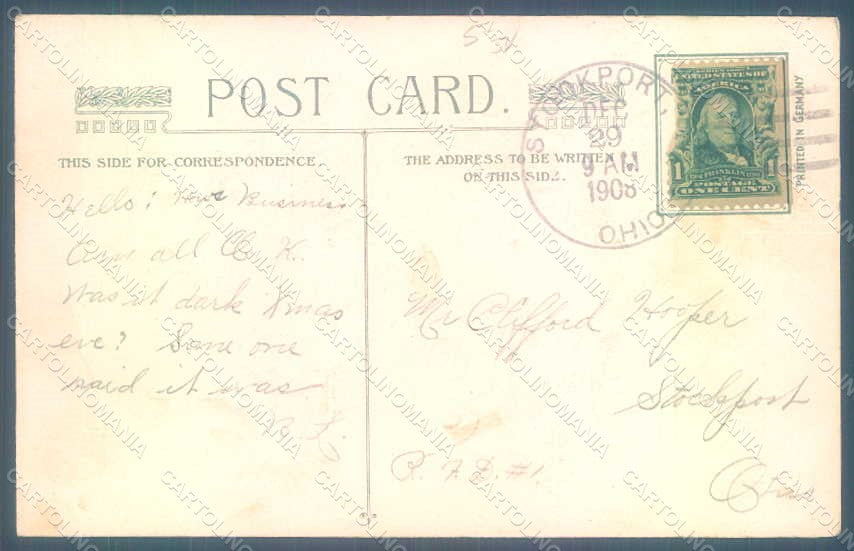 5 st
POST CARD.
THIS SIDE FOR CORRESPONDENCE
THE ADDRESS TO BE WRITTEN
ON THIS SIDE.
STOCKPORT,
DEC
29
9 AM
1908
OHIO
SERIES 1902
UNITED STATES OF
AMERICA
1 1
FRANKLIN
POSTAGE
ONE CENT
PRINTED IN GERMANY
Hello! How's Business
all O. K.
Was it dark Xmas
eve? Some one
said it was.
Mr Clifford Hooper
Stockport
R. F. D. #1.
CARTOLINOMANIA